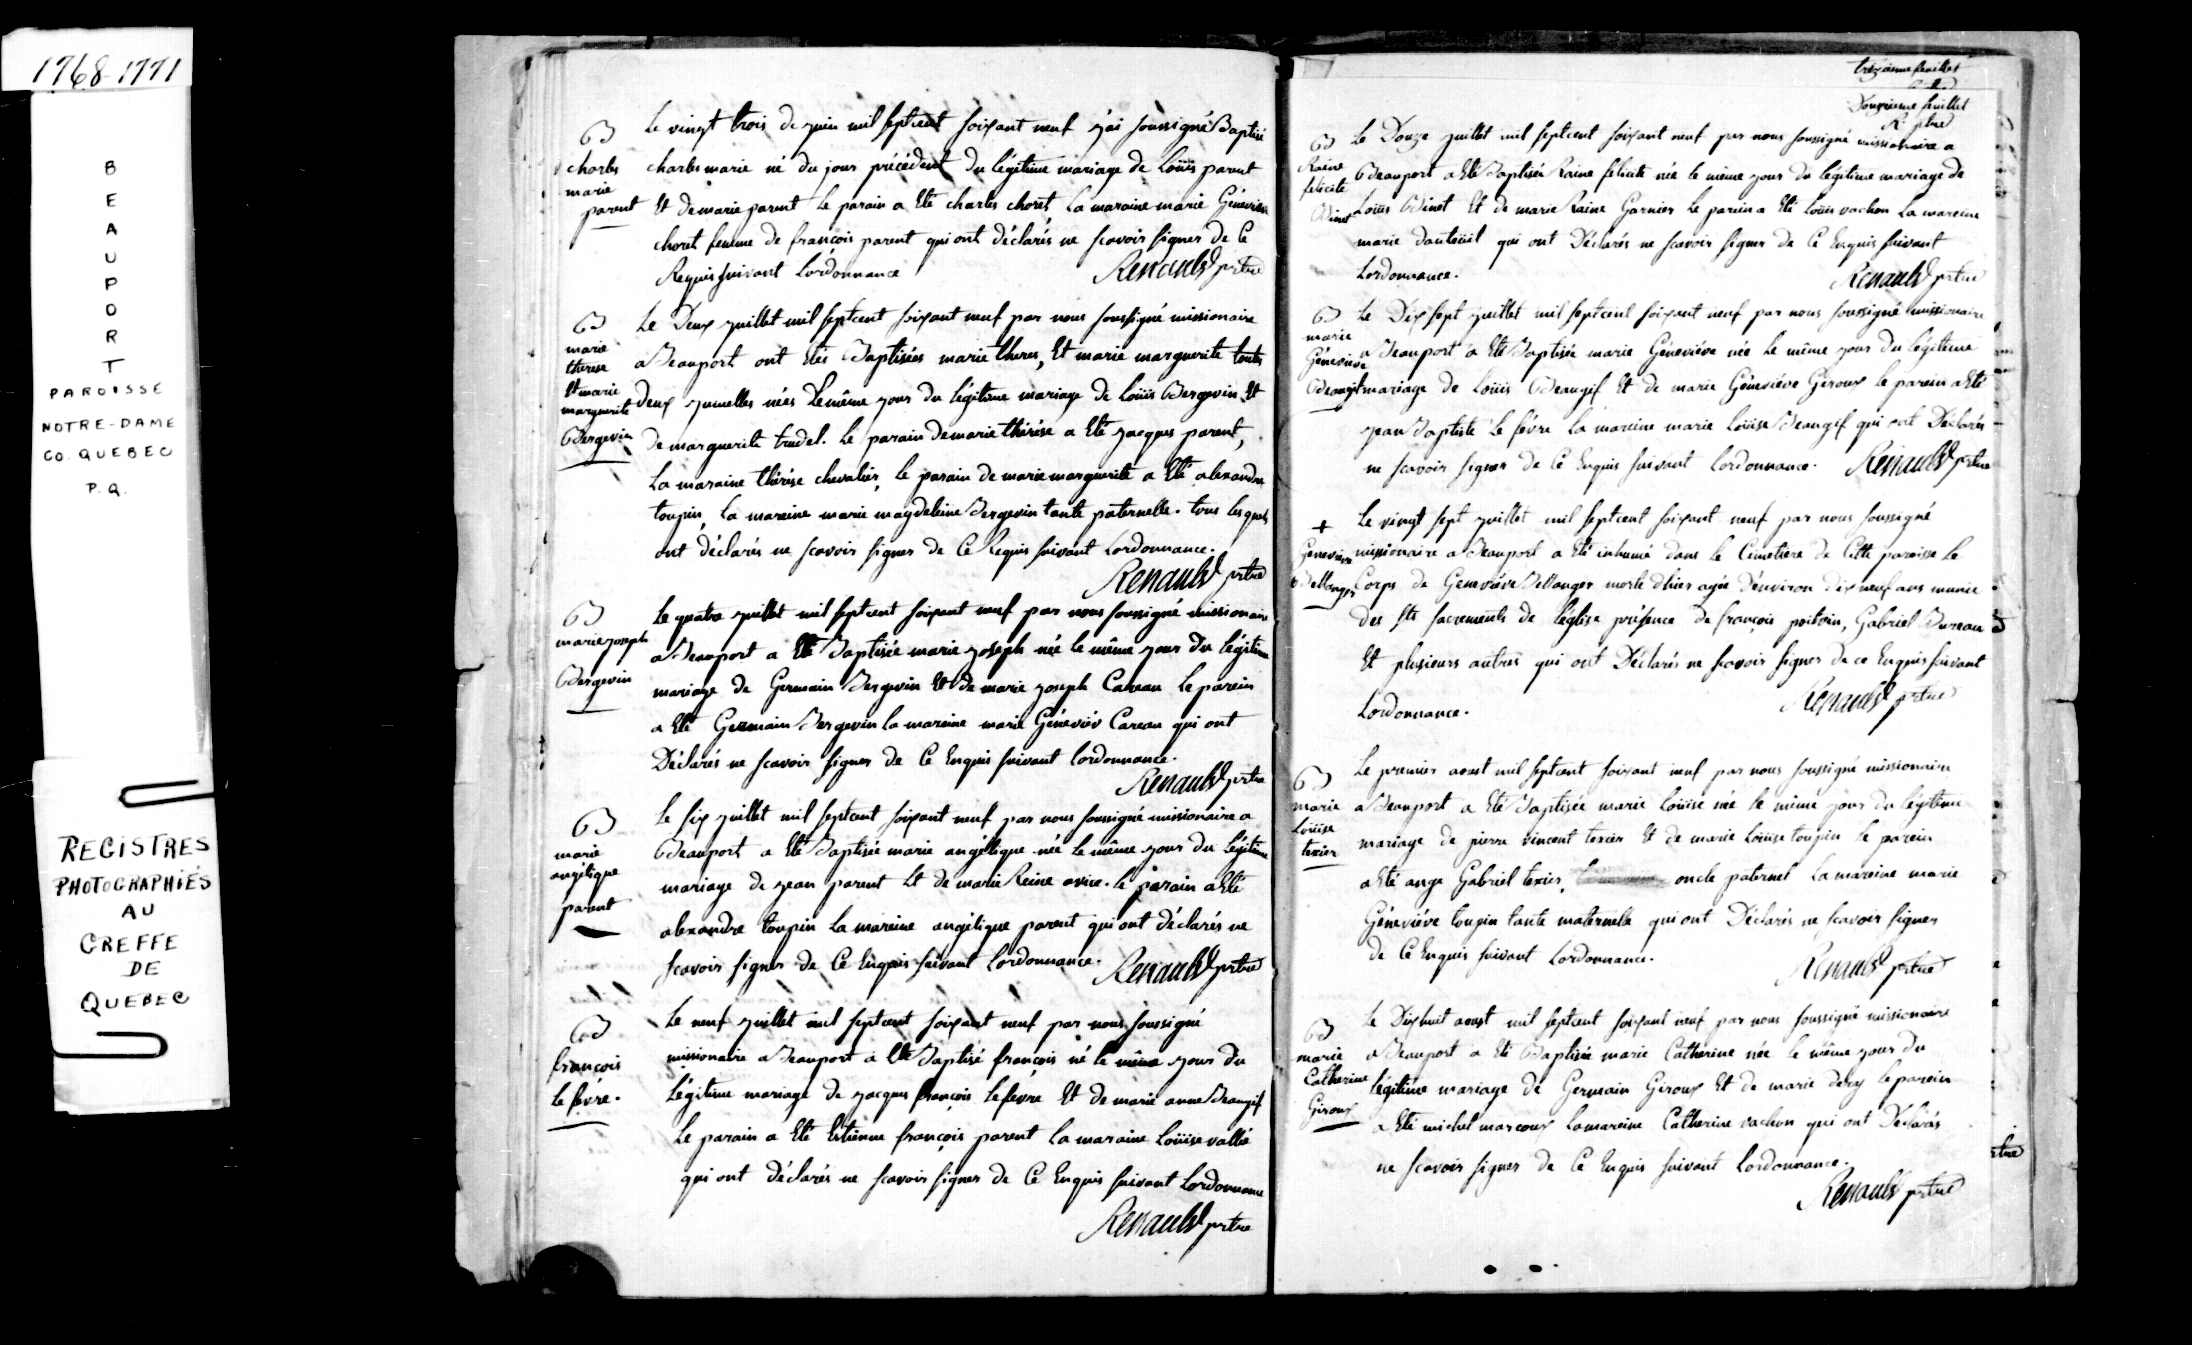 1768-1771
BEAUPORT
PAROISSE
NOTRE-DAME
CO. QUEBEC
P.Q.
REGISTRES
PHOTOGRAPHIÉS
AU
GREFFE
DE
QUEBEC
B
charles
marie
parent
Le vingt trois de juin mil septcent soixant neuf j'ai soussigné Baptisé
charles marie né du jour précédent du légitime mariage de Loüis parent
Et de marie parent le parain a Eté charles choret, la maraine marie Géneviève
choret femme de françois parent qui ont déclarés ne scavoir signer de Ce
Requis suivant Lordonnance
Renauld prtre
B
marie
therese
Et marie
marguerite
Bergevin
Le Deux juillet mil septcent soixant neuf par nous soussigné missionaire
a Beauport ont Etés Baptisées marie theres, Et marie marguerite toutes
deux jumelles nées Le même jour du légitime mariage de Loüis Bergevin Et
de marguerite trudel. Le parain de marie thérèse a Eté jacques parent,
La maraine thérèse chevalier, le parain de marie marguerite a Eté alexandre
toupin, la mareine marie magdeleine Bergevin tante paternelle. tous lesquels
ont déclarés ne scavoir signer de Ce Requis suivant Lordonnance.
Renauld prtre
B
marie joseph
Bergevin
Le quatre juillet mil septcent soixant neuf par nous soussigné missionaire
a Beauport a Eté Baptisée marie joseph née le même jour du légitime
mariage de Germain Bergevin Et de marie joseph Careau le parein
a Eté Germain Bergevin la mareine marie Géneviév Careau qui ont
Déclarés ne scavoir signer de Ce Enquis suivant Lordonnance.
Renauld prtre
B
marie
angélique
parent
Le six juillet mil septcent soixant neuf par nous soussigné missionaire a
Beauport a Eté Baptisée marie angélique née le même jour du légitime
mariage de jean parent Et de marie Reine avice. le parain a Eté
alexandre toupin La mareine angélique parent qui ont déclarés ne
scavoir signer de Ce Enquis suivant Lordonnance.
Renauld prtre
B
françois
le févre.
Le neuf juillet mil septcent soixant neuf par nous soussigné
missionaire a Beauport a Eté Baptisé françois né le même jour du
légitime mariage de jacques françois lefévre Et de marie anne Beaugif
Le parain a Eté Estienne françois parent la maraine Loüise vallé
qui ont déclarés ne scavoir signer de Ce Enquis suivant Lordonnance
Renauld prtre
treizième feuillet
Douzieme feuillet
R. ptre
B
Raine
felicité
Binet
Le Douze juillet mil septcent soixant neuf par nous soussigné missionaire a
Beauport a Eté Baptisée Raine felicité née le même jour du légitime mariage de
Loüis Binet Et de marie Raine Garnier le parein a Eté Loüis vachon La mareine
marie dauteüil qui ont Déclarés ne scavoir signer de Ce Enquis suivant
Lordonnance.
Renauld prtre
B
marie
Géneviève
Beaugif
Le Dix sept juillet mil septcent soixant neuf par nous soussigné missionaire
a Beauport a Eté Baptisée marie Géneviéve née le même jour du légitime
mariage de Loüis Beaugif Et de marie Géneviéve Giroux le parein a Eté
jean Baptiste Le févre la mareine marie Loüise Beaugif qui ont Déclarés
ne scavoir signer de Ce Enquis suivant Lordonnance.
Renauld prtre
+
Genevieve
Bellanger
Le vingt sept juillet mil septcent soixant neuf par nous soussigné
missionaire a Beauport a Eté inhumé dans le Cimetiere de Cette paroisse le
Corps de Geneviéve Bellanger morte d'hier agée d'environ dix neuf ans munie
des Sts Sacrements de l'église présence de françois poitvin, Gabriel Bureau
Et plusieurs autres qui ont Déclarés ne scavoir signer de ce Enquis suivant
Lordonnance.
Renauld prtre
B
marie
Loüise
texier
Le premier aoust mil septcent soixant neuf par nous soussigné missionaire
a Beauport a Eté Baptisée marie Loüise née le même jour du légitime
mariage de pierre vincent texier Et de marie Loüise toupin le parein
a Eté ange Gabriel texier, oncle paternel La mareine marie
Géneviéve toupin tante maternelle qui ont Déclarés ne scavoir signer
de Ce Enquis suivant Lordonnance.
Renauld prtre
B
marie
Catherine
Giroux
Le Dixhuit aoust mil septcent soixant neuf par nous soussigné missionaire
a Beauport a Eté Baptisée marie Catherine née le même jour du
légitime mariage de Germain Giroux Et de marie dery le parein
a Eté michel marcoux la mareine Catherine vachon qui ont Déclarés
ne scavoir signer de Ce Enquis suivant Lordonnance.
Renauld prtre